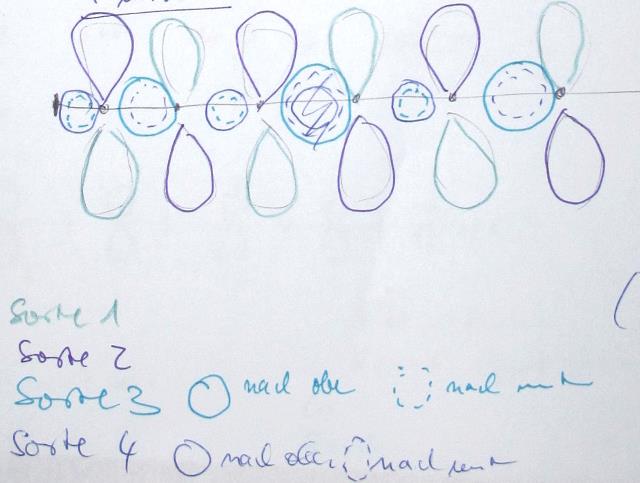 Sorte 1
Sorte 2
Sorte 3 nach oben nach unten
Sorte 4 nach oben nach unten